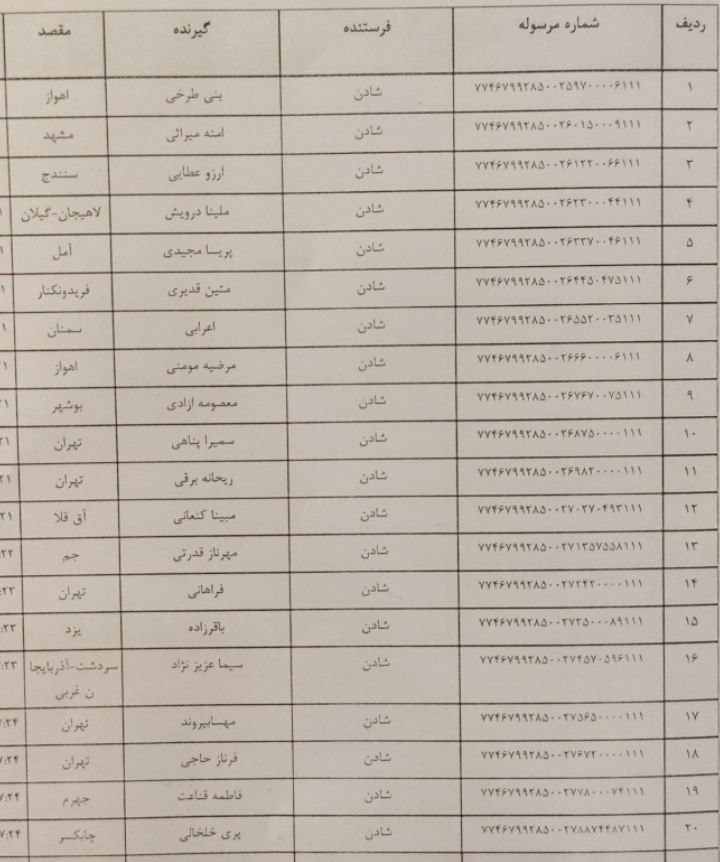 ردیف شماره مرسوله فرستنده گیرنده مقصد
۱ ۷۷۴۶۷۹۹۲۸۵۰۰۲۵۹۷۰۰۰۰۶۱۱۱ شادن بنی طرخی اهواز
۲ ۷۷۴۶۷۹۹۲۸۵۰۰۲۶۰۱۵۰۰۰۹۱۱۱ شادن امنه میرائی مشهد
۳ ۷۷۴۶۷۹۹۲۸۵۰۰۲۶۱۲۲۰۰۶۶۱۱۱ شادن ارزو عطایی سنندج
۴ ۷۷۴۶۷۹۹۲۸۵۰۰۲۶۲۳۰۰۰۴۴۱۱۱ شادن ملینا درویش لاهیجان-گیلان
۵ ۷۷۴۶۷۹۹۲۸۵۰۰۲۶۳۳۷۰۰۴۶۱۱۱ شادن پریسا مجیدی آمل
۶ ۷۷۴۶۷۹۹۲۸۵۰۰۲۶۴۴۵۰۴۷۵۱۱۱ شادن متین قدیری فریدونکنار
۷ ۷۷۴۶۷۹۹۲۸۵۰۰۲۶۵۵۲۰۰۳۵۱۱۱ شادن اعرابی سمنان
۸ ۷۷۴۶۷۹۹۲۸۵۰۰۲۶۶۶۰۰۰۰۶۱۱۱ شادن مرضیه مومنی اهواز
۹ ۷۷۴۶۷۹۹۲۸۵۰۰۲۶۷۶۷۰۰۷۵۱۱۱ شادن معصومه ازادی بوشهر
۱۰ ۷۷۴۶۷۹۹۲۸۵۰۰۲۶۸۷۵۰۰۰۰۱۱۱ شادن سمیرا پناهی تهران
۱۱ ۷۷۴۶۷۹۹۲۸۵۰۰۲۶۹۸۲۰۰۰۰۱۱۱ شادن ریحانه برقی تهران
۱۲ ۷۷۴۶۷۹۹۲۸۵۰۰۲۷۰۲۷۰۴۹۳۱۱۱ شادن مبینا کنعانی آق قلا
۱۳ ۷۷۴۶۷۹۹۲۸۵۰۰۲۷۱۳۵۷۵۵۸۱۱۱ شادن مهرناز قدرتی جم
۱۴ ۷۷۴۶۷۹۹۲۸۵۰۰۲۷۲۴۲۰۰۰۰۱۱۱ شادن فراهانی تهران
۱۵ ۷۷۴۶۷۹۹۲۸۵۰۰۲۷۳۵۰۰۰۸۹۱۱۱ شادن باقرزاده یزد
۱۶ ۷۷۴۶۷۹۹۲۸۵۰۰۲۷۴۵۷۰۵۹۶۱۱۱ شادن سیما عزیز نژاد سردشت-آذربایجا
ن غربی
۱۷ ۷۷۴۶۷۹۹۲۸۵۰۰۲۷۵۶۵۰۰۰۰۱۱۱ شادن مهسابیروند تهران
۱۸ ۷۷۴۶۷۹۹۲۸۵۰۰۲۷۶۷۲۰۰۰۰۱۱۱ شادن فرناز حاجی تهران
۱۹ ۷۷۴۶۷۹۹۲۸۵۰۰۲۷۷۸۰۰۰۷۴۱۱۱ شادن فاطمه قناعت جهرم
۲۰ ۷۷۴۶۷۹۹۲۸۵۰۰۲۷۸۸۷۴۴۸۷۱۱۱ شادن پری خلخالی چابکسر